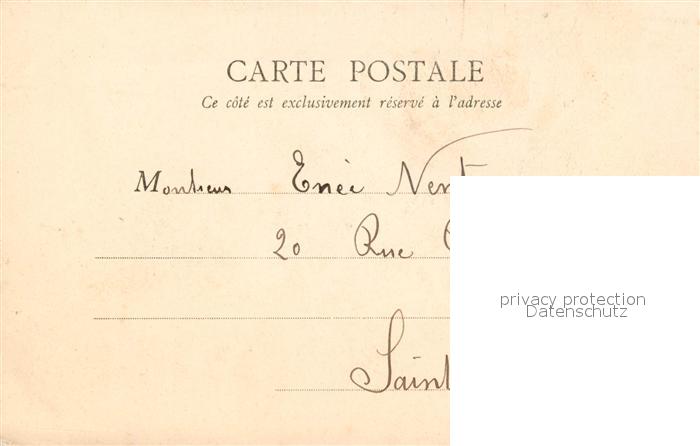 CARTE POSTALE
Ce côté est exclusivement réservé à l'adresse
Monsieur Enéi
20 Rue
privacy protection
Datenschutz
Saint